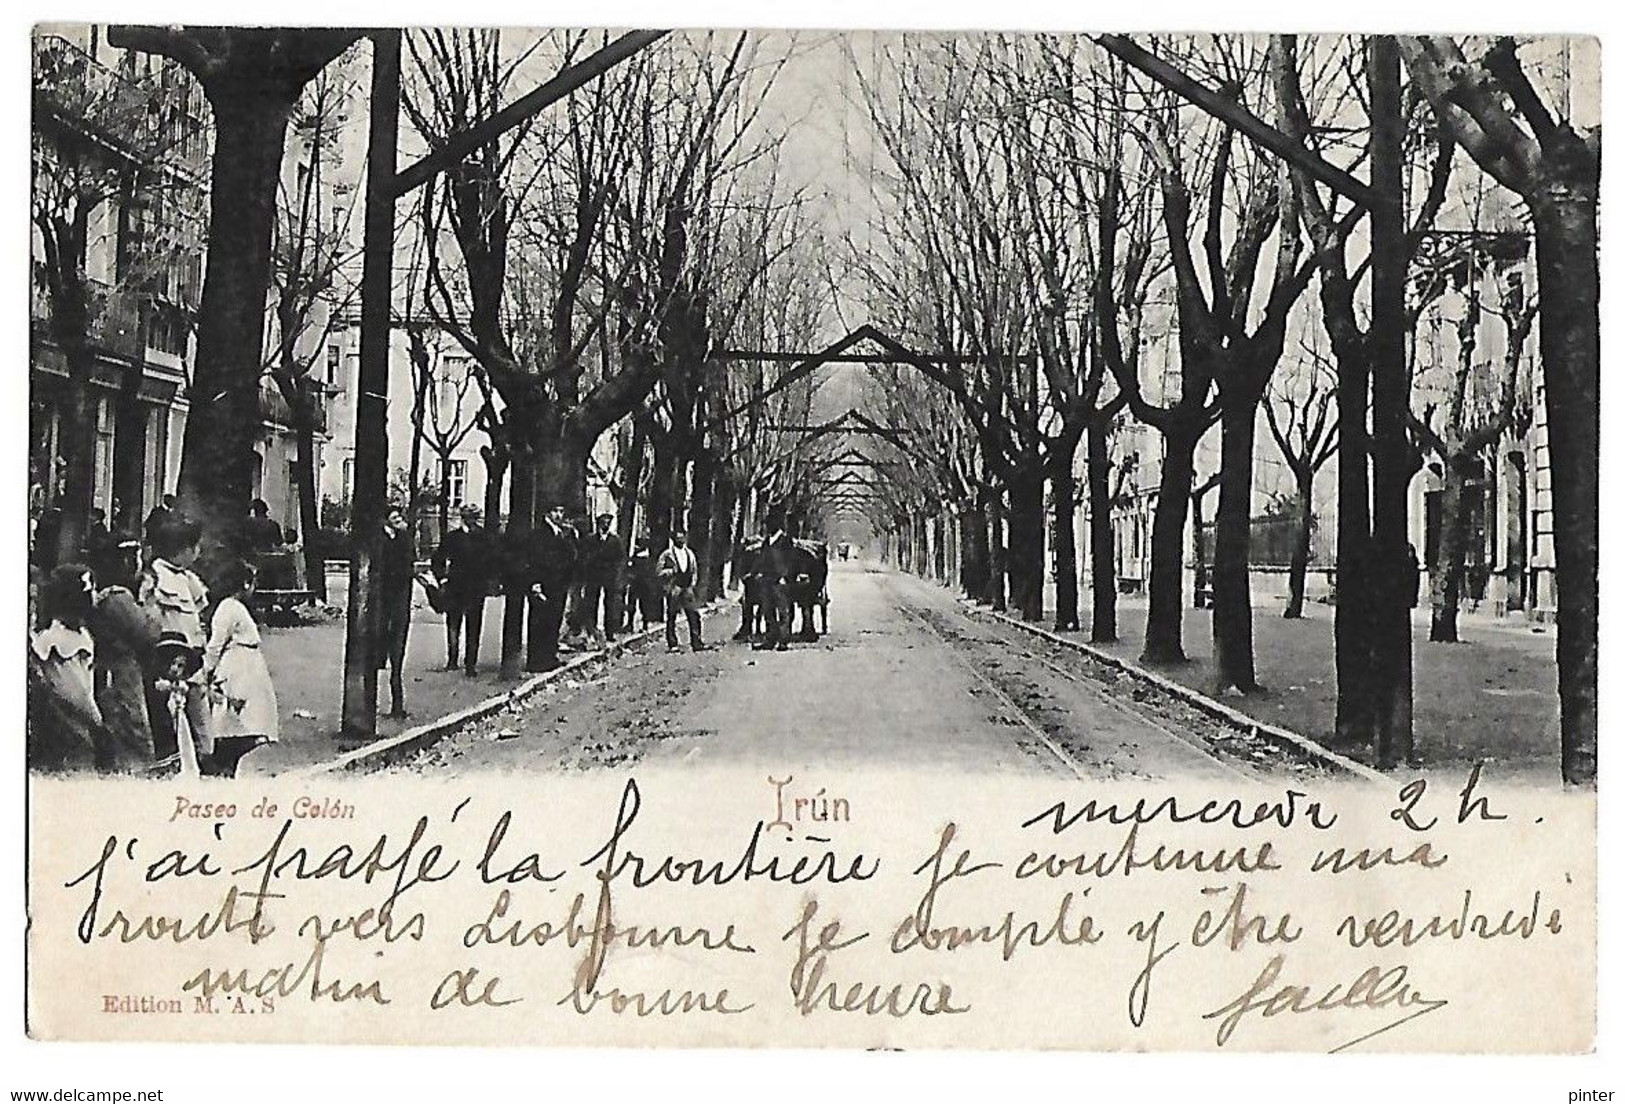 Paseo de Colón
Irún
mercredi 2 h.
j'ai passé la frontière je continue ma
route vers Lisbonne je compte y être vendredi
matin de bonne heure
Edition M. A. S
delcampe.net
pinter